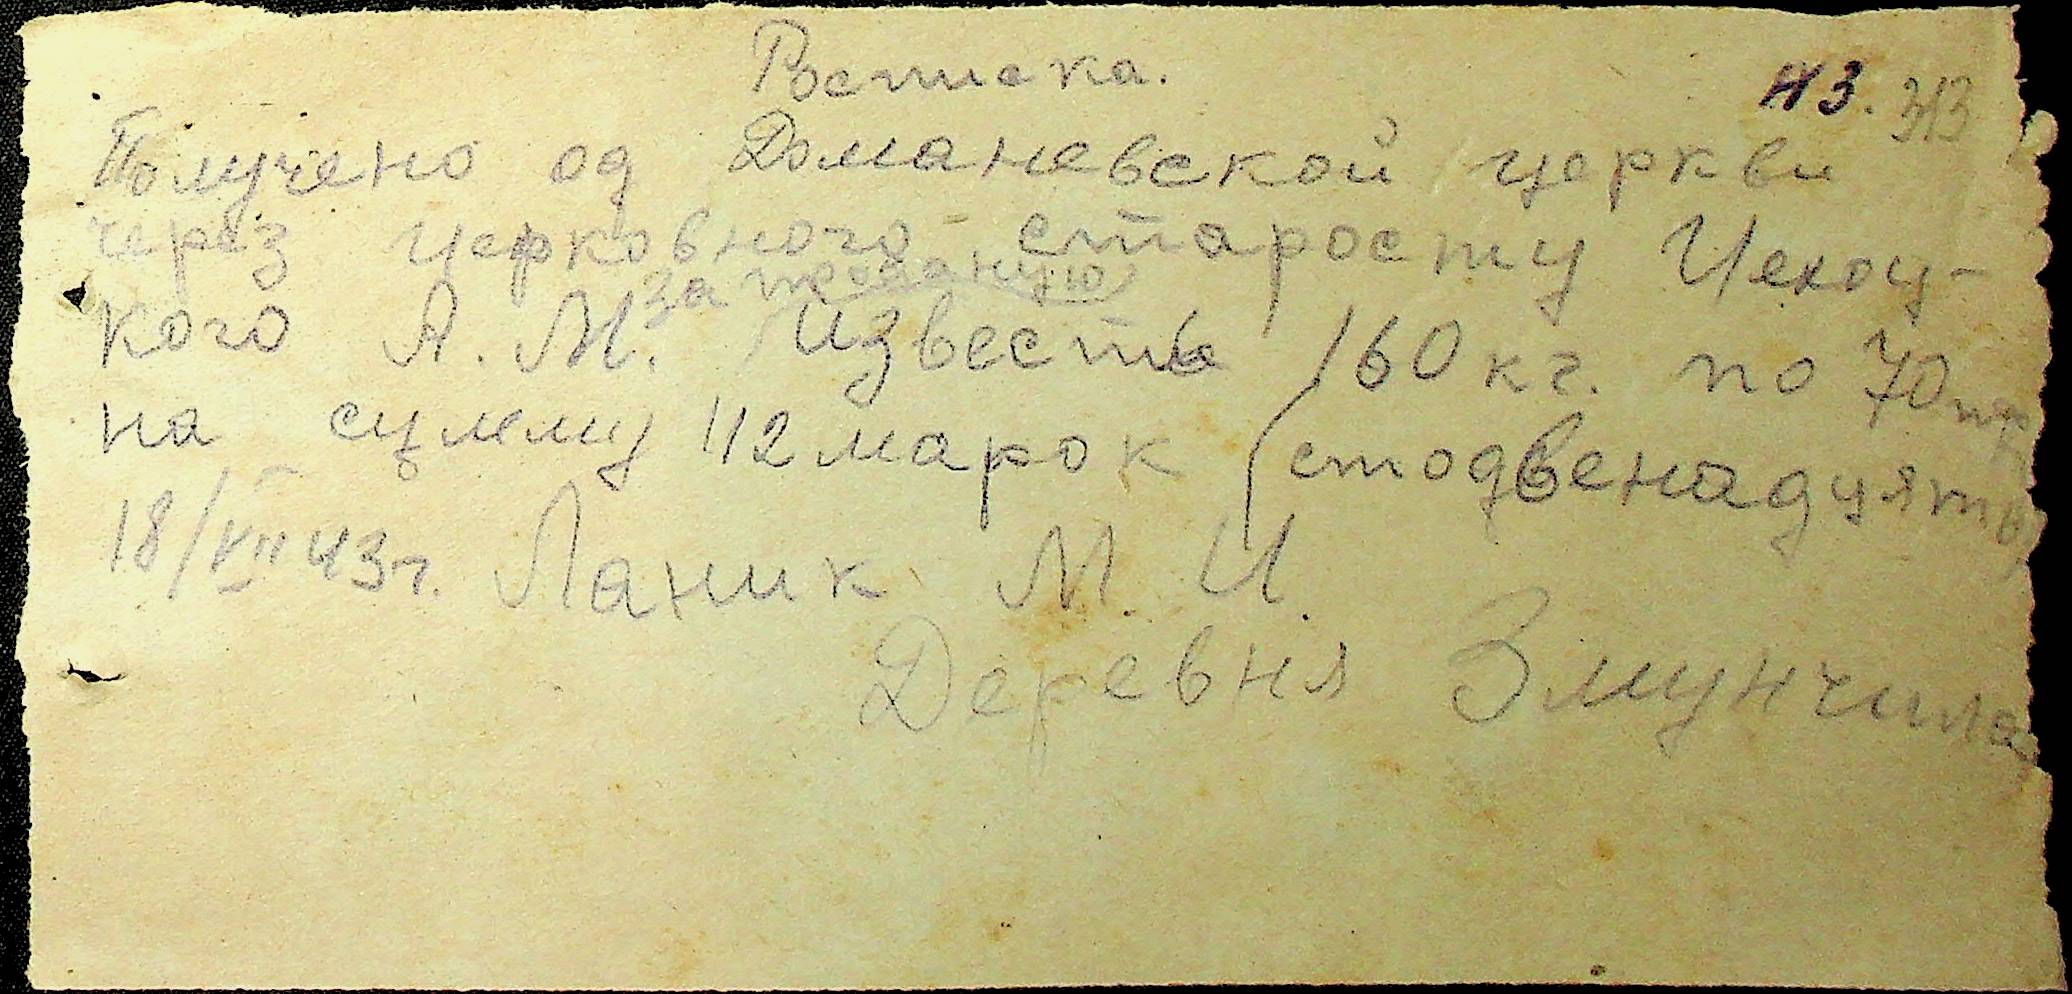 Росписка.
43. 313
Получено од Доманевской церкви
через церковного старосту Чехоц-
за проданую
кого А. М. известь 160 кг. по 70 пф
на сумму 112 марок (стодвенадцять)
18/VII 43 г. Ланик М. И.
Деревня Змунчила